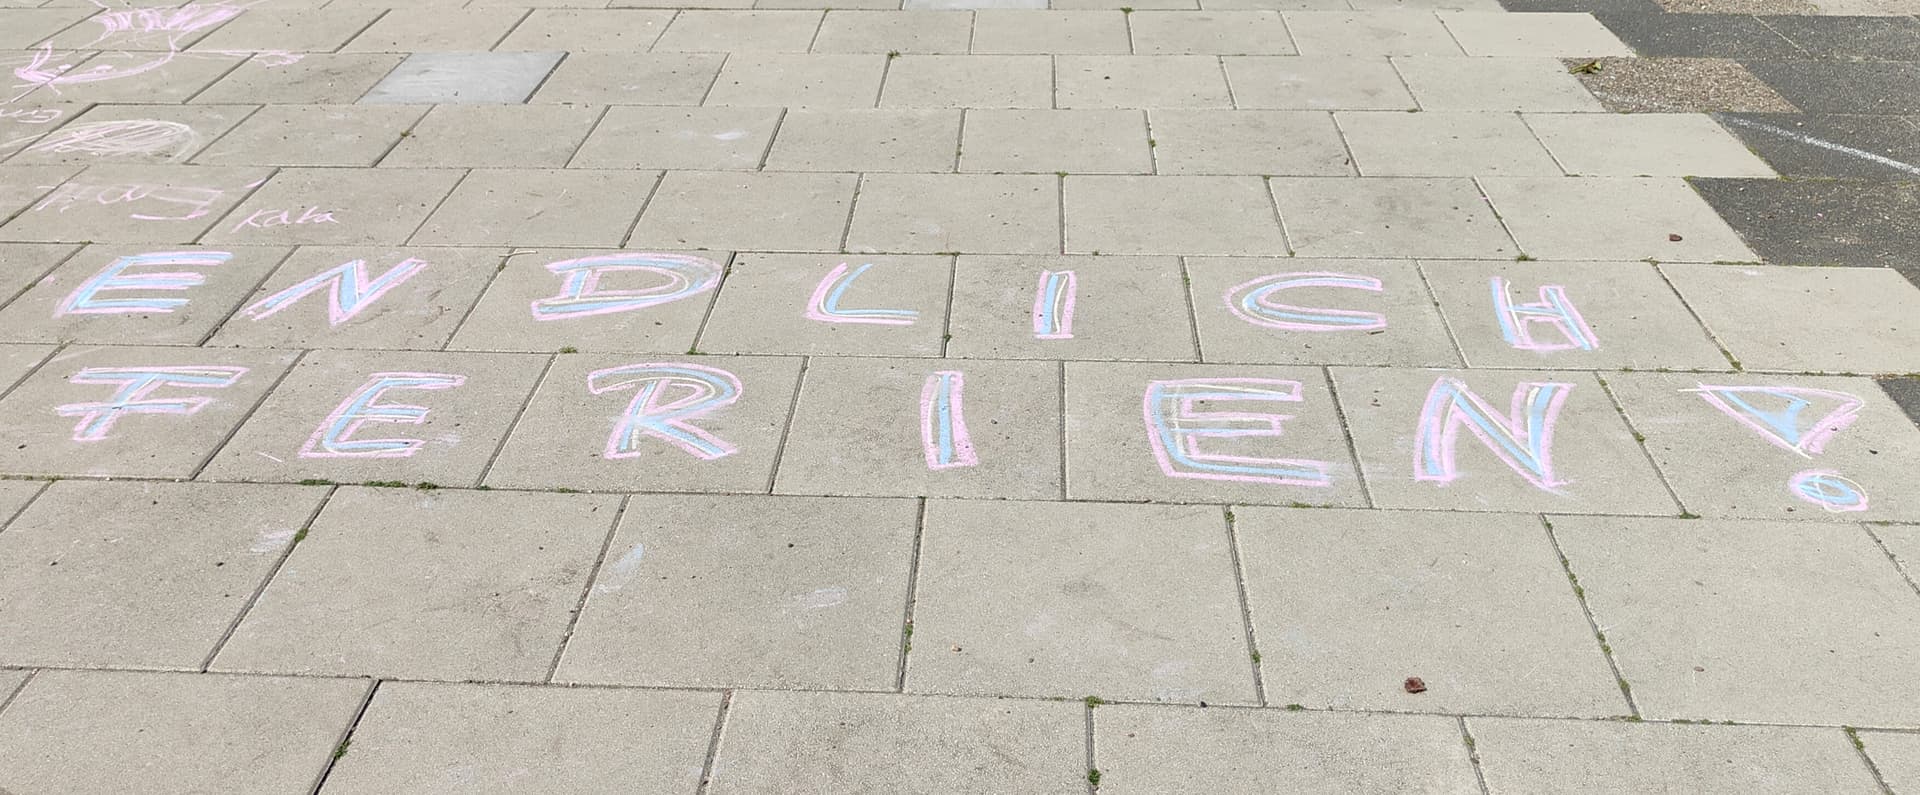 Kala
ENDLICH
FERIEN!